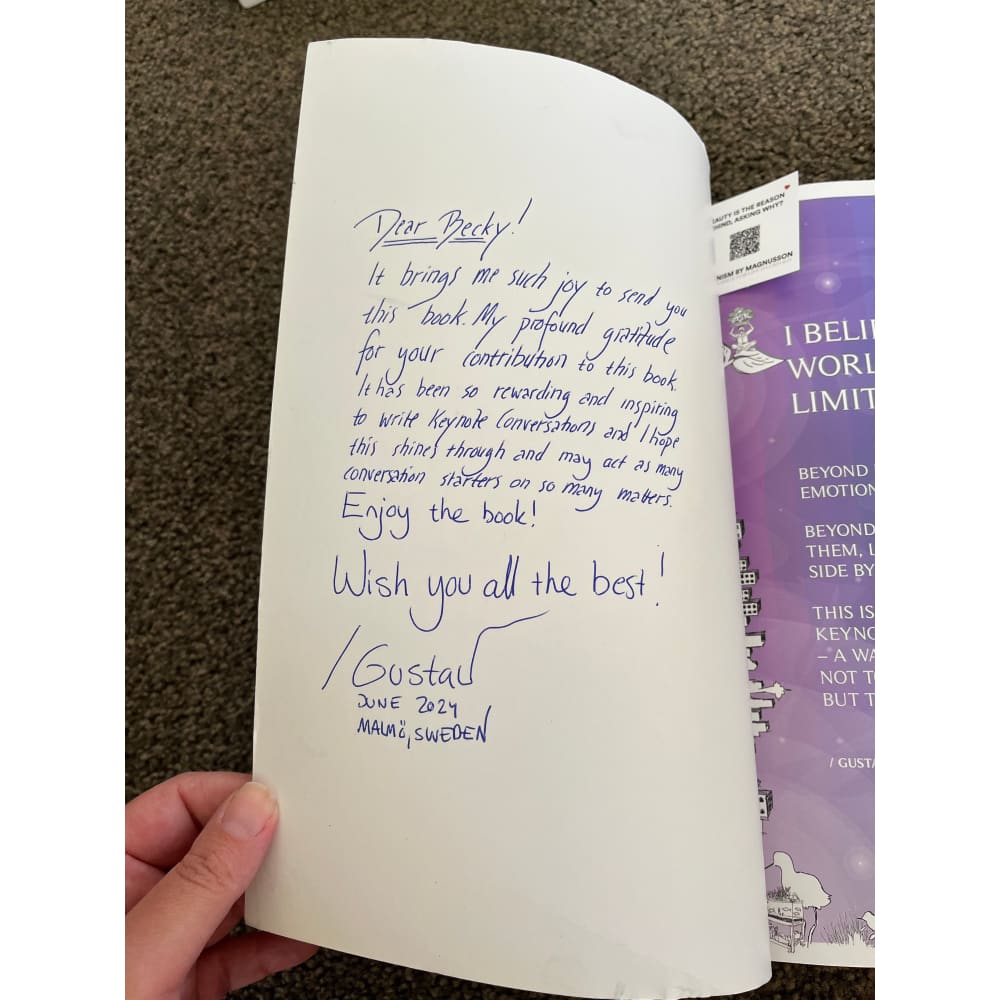 Dear Becky!
It brings me such joy to send you
this book. My profound gratitude
for your contribution to this book.
It has been so rewarding and inspiring
to write Keynote Conversations and I hope
this shines through and may act as many
conversation starters on so many matters.
Enjoy the book!
Wish you all the best!
/Gustav
JUNE 2024
MALMÖ, SWEDEN
EAUTY IS THE REASON
HIND, ASKING WHY?
NISM BY MAGNUSSON
I BELI
WORL
LIMIT
BEYOND
EMOTION
BEYOND
THEM, L
SIDE BY
THIS IS
KEYNO
– A WA
NOT T
BUT T
/ GUSTA